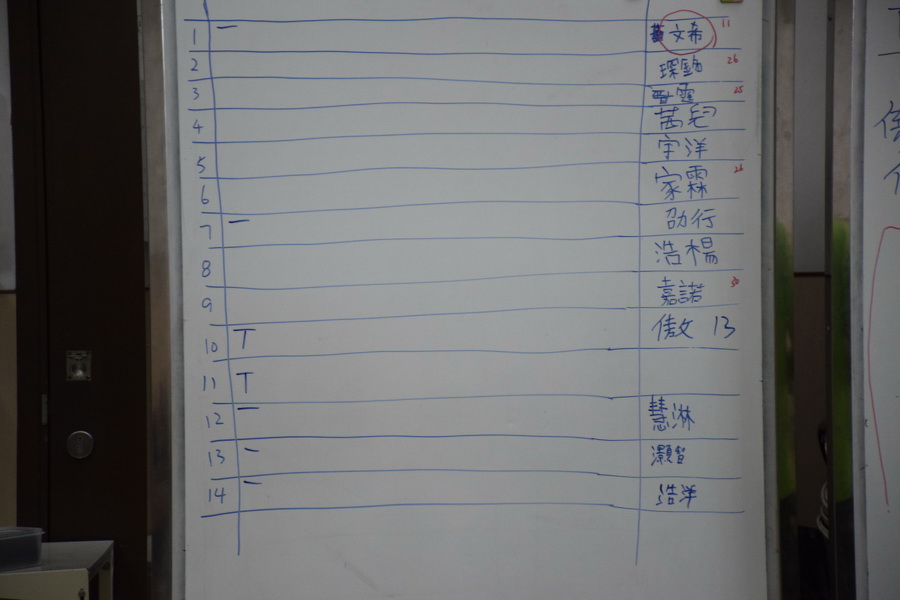 1 一 黃文希 11
2 琛鈞 26
3 霆 25
4 茜兒
5 宇洋
6 家霖 26
7 一 劭行
8 浩楊
9 嘉諾 30
10 T 傲文 13
11 T
12 一 慧淋
13 一 灝智
14 一 浩洋